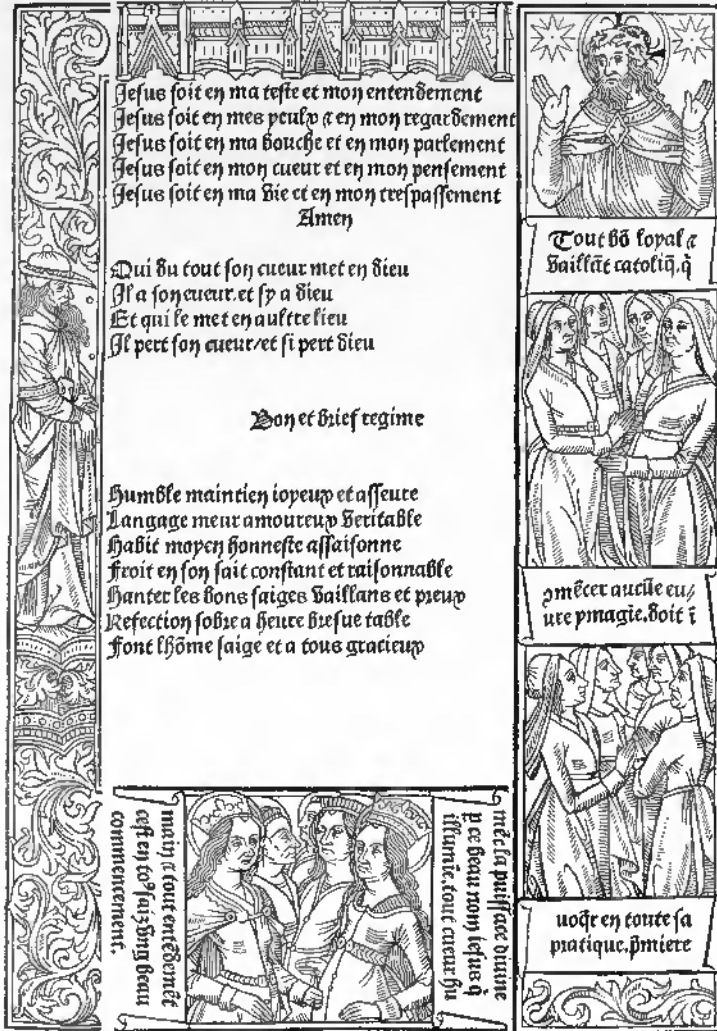 Jesus soit en ma teste et mon entendement
Jesus soit en mes yeulx & en mon regardement
Jesus soit en ma bouche et en mon parlement
Jesus soit en mon cueur et en mon pensement
Jesus soit en ma vie et en mon trespassement
Amen
Qui du tout son cueur met en dieu
Il a son cueur. et sy a dieu
Et qui le met en aultre lieu
Il pert son cueur/et si pert dieu
Bon et brief regime
Humble maintien ioyeux et asseure
Langage meur amoureux veritable
Habit moyen honneste assaisonne
Froit en son fait constant et raisonnable
Hanter les bons saiges vaillans et preux
Refection sobre a heure bresue table
Font lhõme saige et a tous gracieux
Tout bõ loyal &
vaillãt catoliq̃.q̃
ꝯmẽcer aucũe eu/
ure ymagie.doit ĩ
uoq̃r en toute sa
pratique.p̃miere
mẽt la puissãce diuine
p ce beau nom iesus q̃
illumie.tout cueur hu
main & tout entẽdemẽt
cest en toꝰ faiz vng beau
commencement.